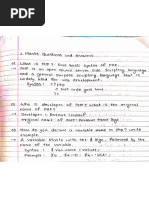 1 Marks Questions and Answers
Q1 What is PHP? Give basic syntax of PHP.
→ PHP is an open source server side scripting language
and a general purpose scripting language that is
widely used for web development.
Syntax : <?php
// PHP code goes here
?>
Q2 Who is developer of PHP? What is the original
name of PHP?
→ Developer : Rasmus Lerdorf
Original name of PHP: Personal Home Page
Q3 How do you declare a variable name in PHP? write
example.
→ A variable starts with the $ sign, followed by the
name of the variable.
Syntax : $var-name = value;